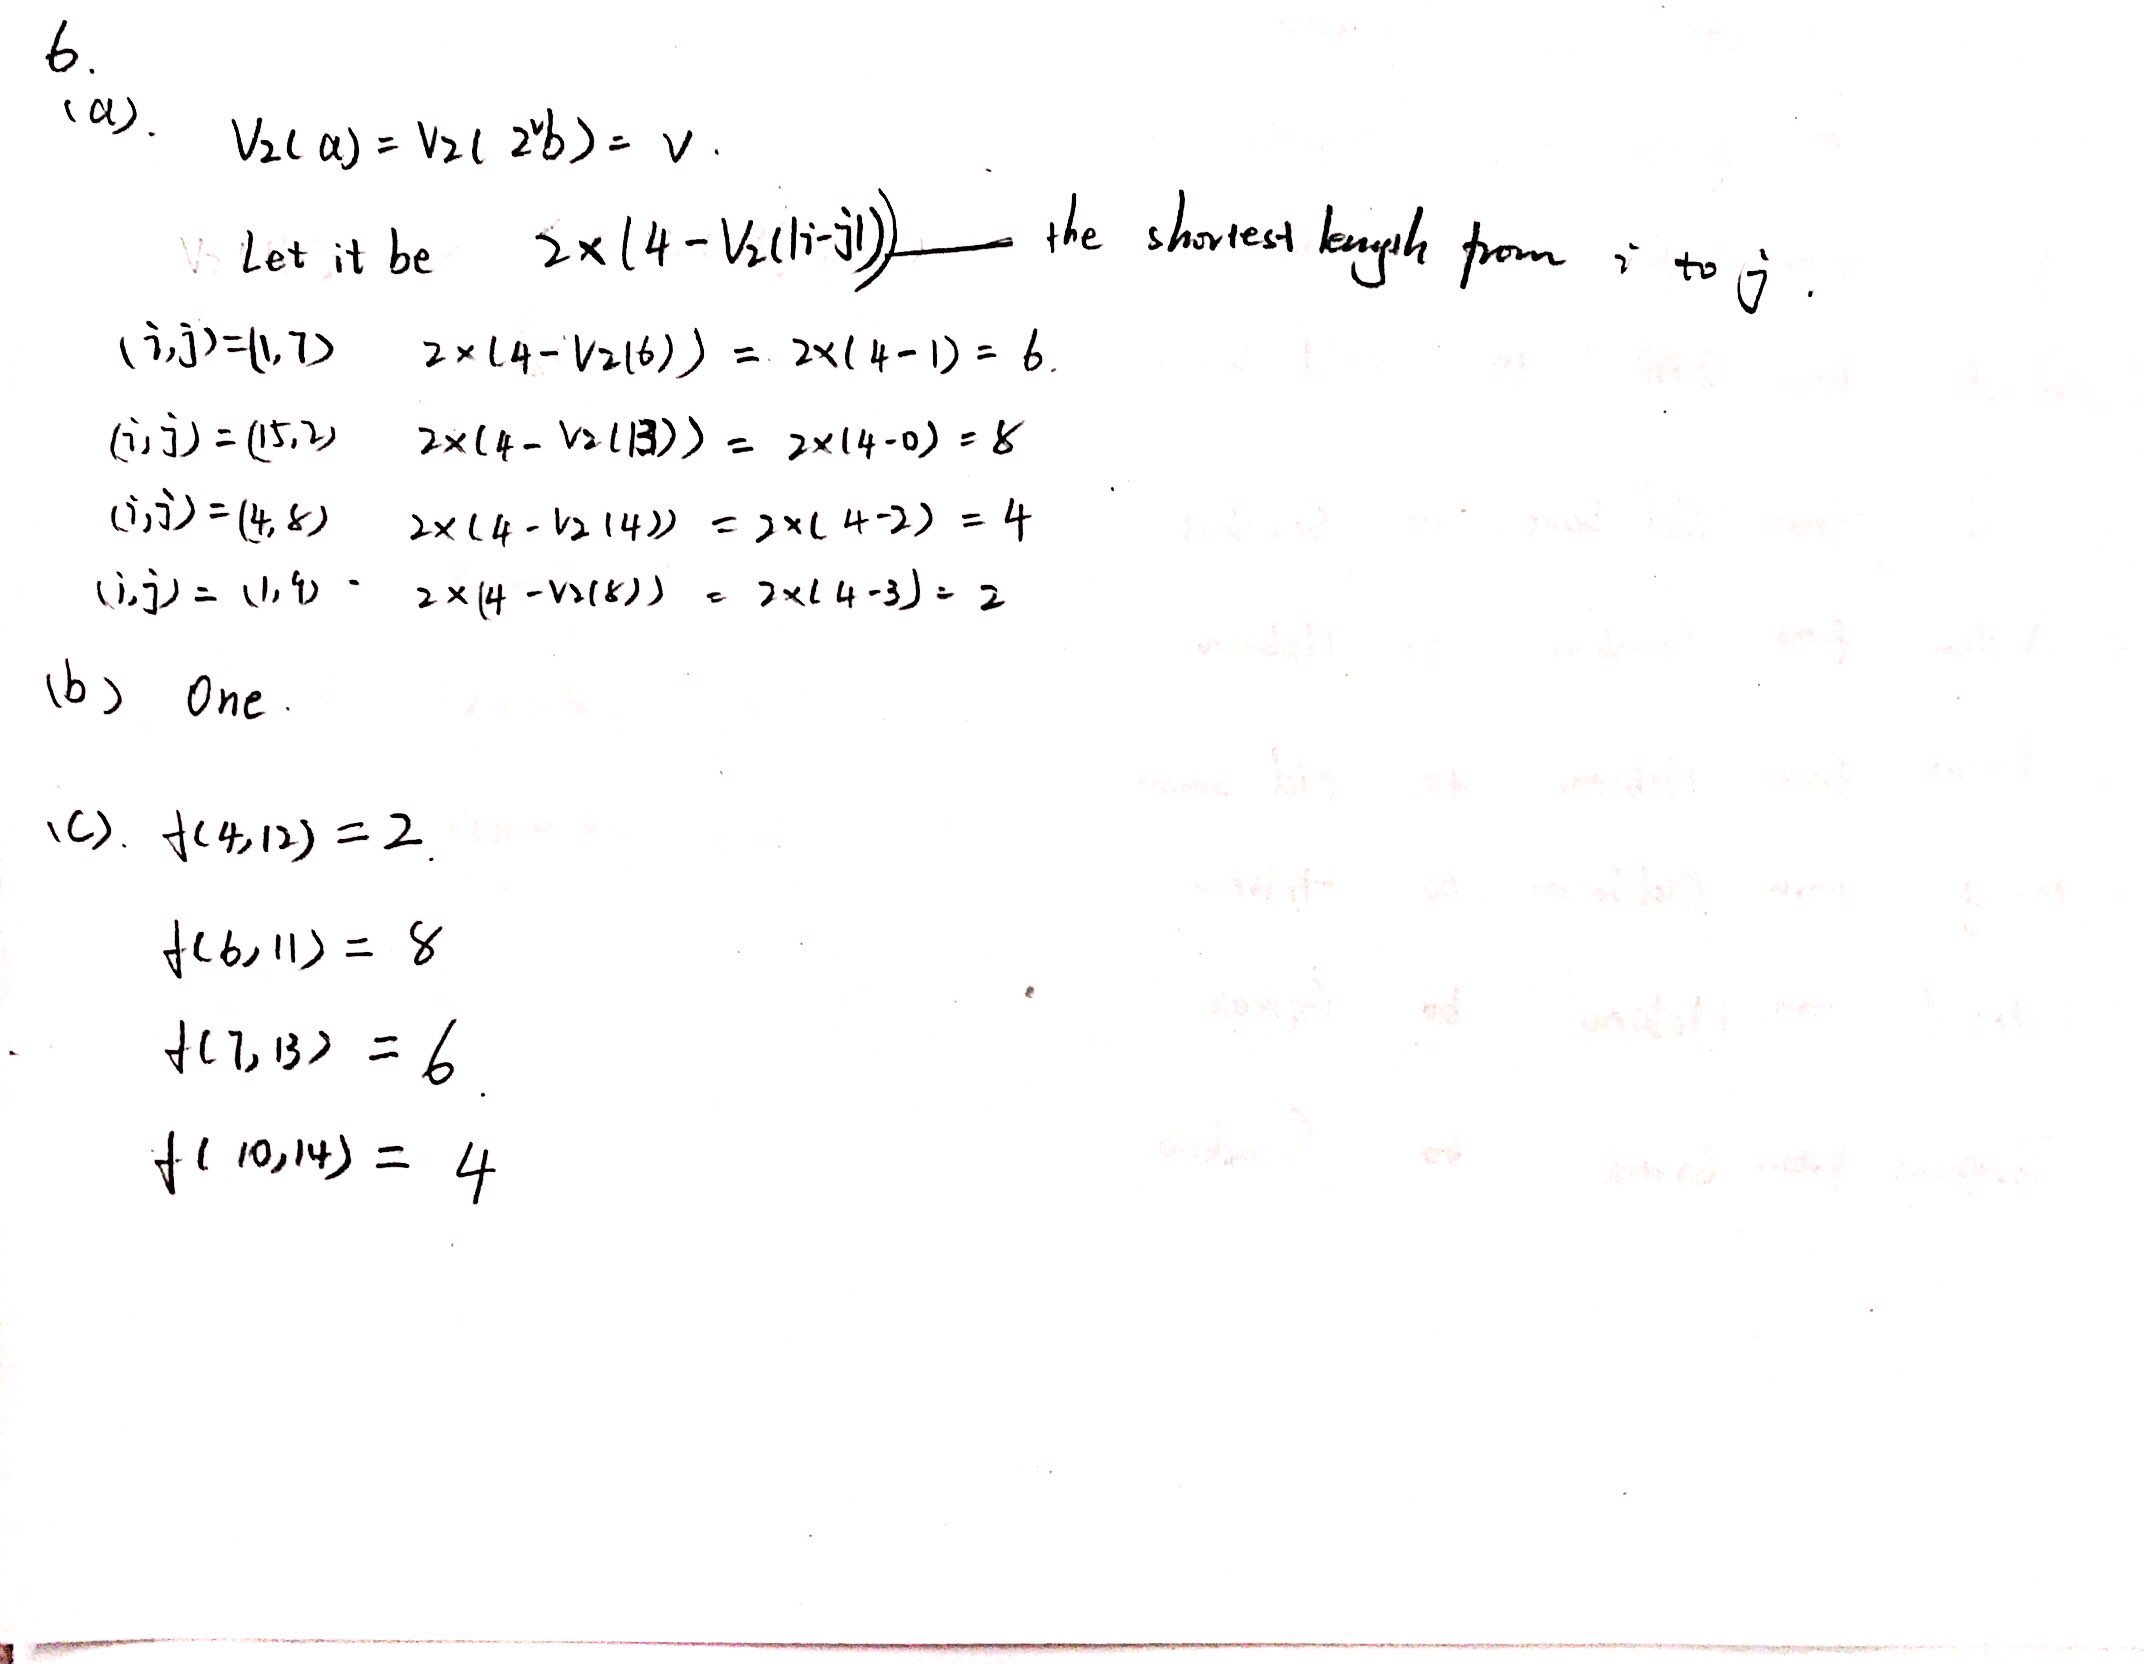 6.
(a).
V₂(a) = V₂(2ᵛb) = v.
Let it be 2×(4-V₂(|i-j|)) — the shortest length from i to j.
(i,j)=(1,7) 2×(4-V₂(6)) = 2×(4-1) = 6.
(i,j)=(15,2) 2×(4-V₂(13)) = 2×(4-0) = 8
(i,j)=(4,8) 2×(4-V₂(4)) = 2×(4-2) = 4
(i,j) = (1,9) 2×(4-V₂(8)) = 2×(4-3) = 2
(b) One.
(c). f(4,12) = 2.
f(6,11) = 8
f(7,13) = 6.
f(10,14) = 4